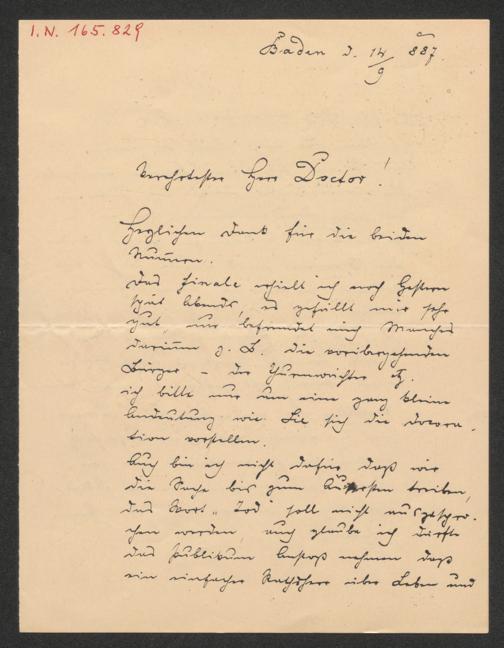 I.N. 165.829
Baden d. 14/9 887.
Verehrtester Herr Doctor!
Herzlichen Dank für die beiden
Numern.
Das Finale erhielt ich noch Gestern
spät Abends, es gefällt mir sehr
gut nur befremdet mich Manches
darin z. B. die vorübergehenden
Bürger – der Thurmwächter etz.
ich bitte nur um eine ganz kleine
Andeutung wie Sie sich die Decora-
tion vorstellen.
Auch bin ich nicht dafür daß wir
die Sache bis zum Äußersten treiben,
das Wort „Tod" soll nicht ausgespro-
chen werden, auch glaube ich dürfte
das Publikum Anstoß nehmen daß
ein einfacher Rathsherr über Leben und